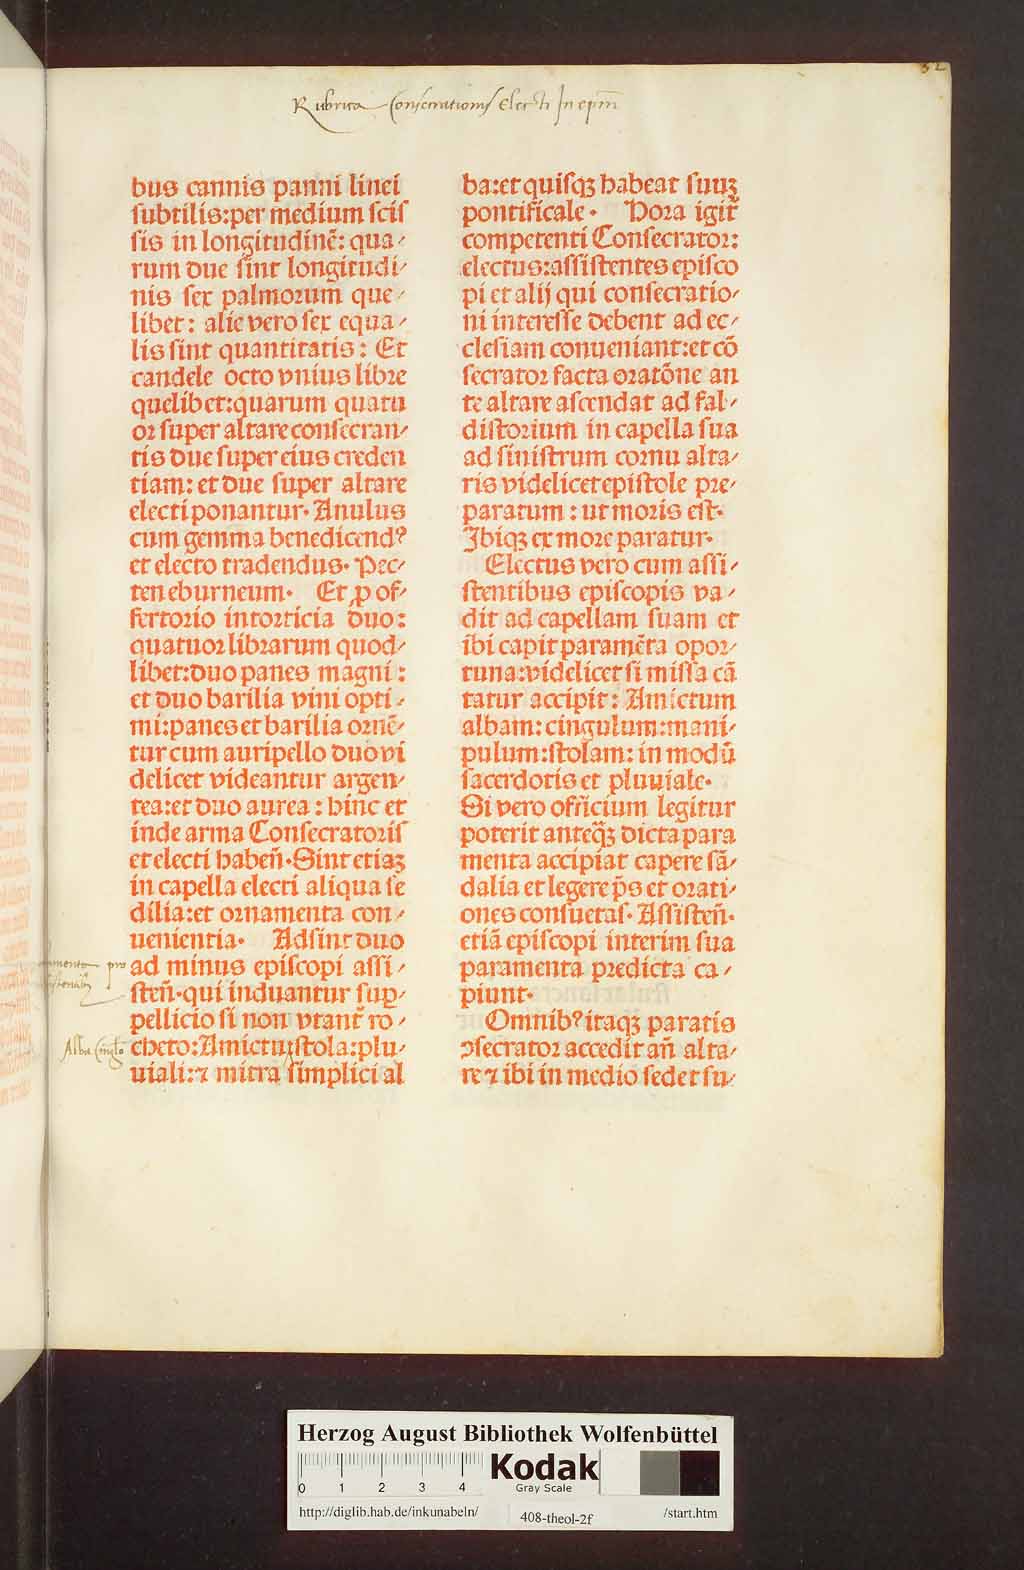 32
Rubrica Consecrationis Electi In ep̄m
bus cannis panni linei
subtilis:per medium scis
sis in longitudinē: qua-
rum due sint longitudi-
nis sex palmorum que-
libet: alie vero sex equa-
lis sint quantitatis: Et
candele octo vnius libre
quelibet:quarum quatu
or super altare consecran-
tis due super eius creden
tiam: et due super altare
electi ponantur. Anulus
cum gemma benedicendꝰ
et electo tradendus. Pec-
ten eburneum. Et ꝓ of-
fertorio intorticia duo:
quatuor librarum quod-
libet:duo panes magni:
et duo barilia vini opti-
mi:panes et barilia ornē-
tur cum auripello duo vi
delicet videantur argen-
tea:et duo aurea: hinc et
inde arma Consecratoris
et electi habeñ. Sint etiaꝫ
in capella electi aliqua se
dilia:et ornamenta con-
uenientia. Adsint duo
ad minus episcopi assi-
steñ.qui induantur suꝑ-
pellicio si non vtant᷑ ro-
cheto:Amictu stola:plu-
uiali:⁊ mitra simplici al
pro
Alba Cinglo
ba:et quisqꝫ habeat suuꝫ
pontificale. Hora igit᷑
competenti Consecrator:
electus:assistentes episco
pi et alij qui consecratio-
ni interesse debent ad ec-
clesiam conueniant:et cō
secrator facta oratōne an
te altare ascendat ad fal-
distorium in capella sua
ad sinistrum cornu alta-
ris videlicet epistole pre-
paratum: ut moris est.
Ibiqꝫ ex more paratur.
Electus vero cum assi-
stentibus episcopis va-
dit ad capellam suam et
ibi capit paramēta opor-
tuna:videlicet si missa cā
tatur accipit: Amictum
albam: cingulum:mani-
pulum:stolam: in modū
sacerdotis et pluuiale.
Si vero officium legitur
poterit anteqꝫ̄ dicta para
menta accipiat capere sā-
dalia et legere p̄s et orati-
ones consuetas. Assisteñ.
etiā episcopi interim sua
paramenta predicta ca-
piunt.
Omnibꝰ itaqꝫ paratis
ꝯsecrator accedit añ alta-
re ⁊ ibi in medio sedet su-
Herzog August Bibliothek Wolfenbüttel
0 1 2 3 4
Kodak
Gray Scale
http://diglib.hab.de/inkunabeln/
408-theol-2f
/start.htm